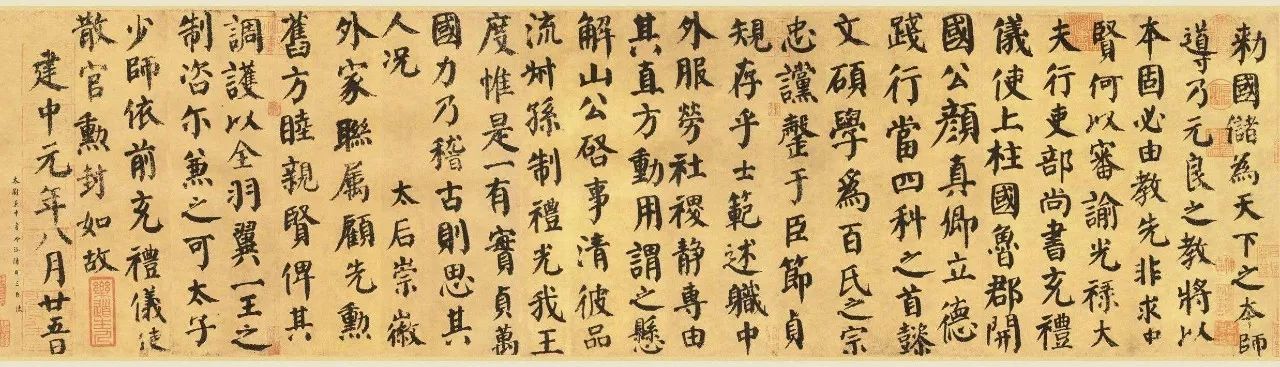 勅國儲為天下之本師
導乃元良之教將以
本固必由教先非求中
賢何以審諭光祿大
夫行吏部尚書充禮
儀使上柱國魯郡開
國公顏真卿立德
踐行當四科之首懿
文碩學爲百氏之宗
忠讜罄于臣節貞
規存乎士範述職中
外服勞社稷静專由
其直方動用謂之懸
解山公啓事清彼品
流叔孫制禮光我王
度惟是一有實貞萬
國力乃稽古則思其
人况 太后崇徽
外家聯属顧先勳
舊方睦親賢俾其
調護以全羽翼一王之
制咨尒兼之可太子
少師依前充禮儀使
散官勳封如故
建中元年八月廿五日